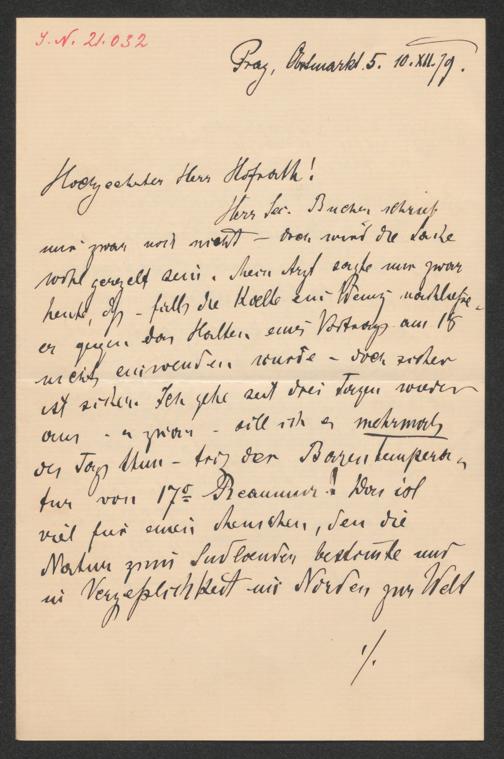 J. N. 21.032
Prag, Obstmarkt 5. 10.XII.79.
Hochgeehrter Herr Hofrath!
Herr Sec. Bucher schrieb
mir zwar noch nicht – doch wird die Sache
wohl geregelt sein. Mein Arzt sagte mir zwar
heute, dß – falls die Kälte ein Wenig nachließe –
er gegen das Halten eines Vortrags am 18
nichts einwenden würde – doch sicher
ist sicher. Ich gehe seit drei Tagen wieder
aus – u zwar – soll ich es mehrmals
des Tags thun – trotz der Bärentempera-
tur von 17° Reaumur! Das ist
viel für einen Menschen, den die
Natur zum Südländer bestimmte und
in Vergeßlichkeit im Norden zur Welt
./.